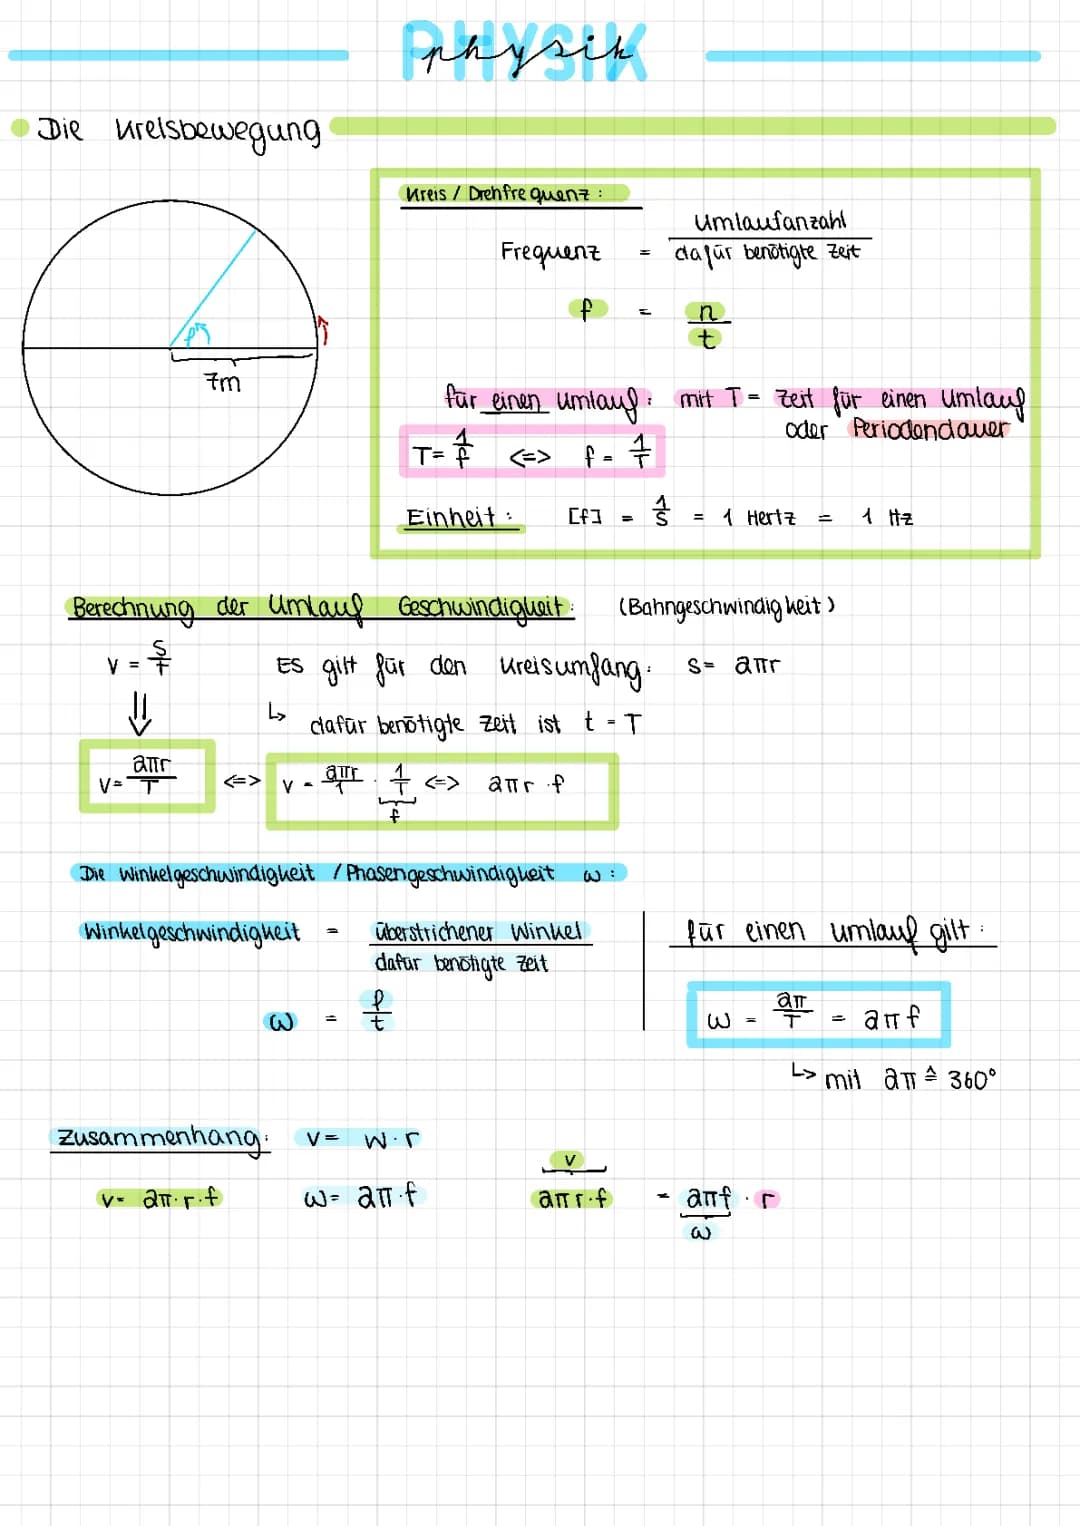 PHYSIK
physik
Die Kreisbewegung
Kreis / Drehfrequenz :
Frequenz = Umlaufanzahl / dafür benötigte Zeit
f = n / t
für einen Umlauf: mit T = Zeit für einen Umlauf
oder Periodendauer
T = 1/f <=> f = 1/T
Einheit : [f] = 1/s = 1 Hertz = 1 Hz
φ
7m
Berechnung der Umlauf Geschwindigkeit: (Bahngeschwindigkeit)
v = s/t Es gilt für den Kreisumfang: s = 2πr
↳ dafür benötigte Zeit ist t = T
⇓
v = 2πr/T <=> v = 2πr/1 · 1/T <=> 2πr · f
f
Die Winkelgeschwindigkeit / Phasengeschwindigkeit ω :
Winkelgeschwindigkeit = überstrichener Winkel / dafür benötigte Zeit
ω = φ/t
für einen Umlauf gilt :
ω = 2π/T = 2πf
↳ mit 2π ≙ 360°
Zusammenhang: v = w · r
v = 2π·r·f ω = 2π·f
v
2πr·f = 2πf · r
ω